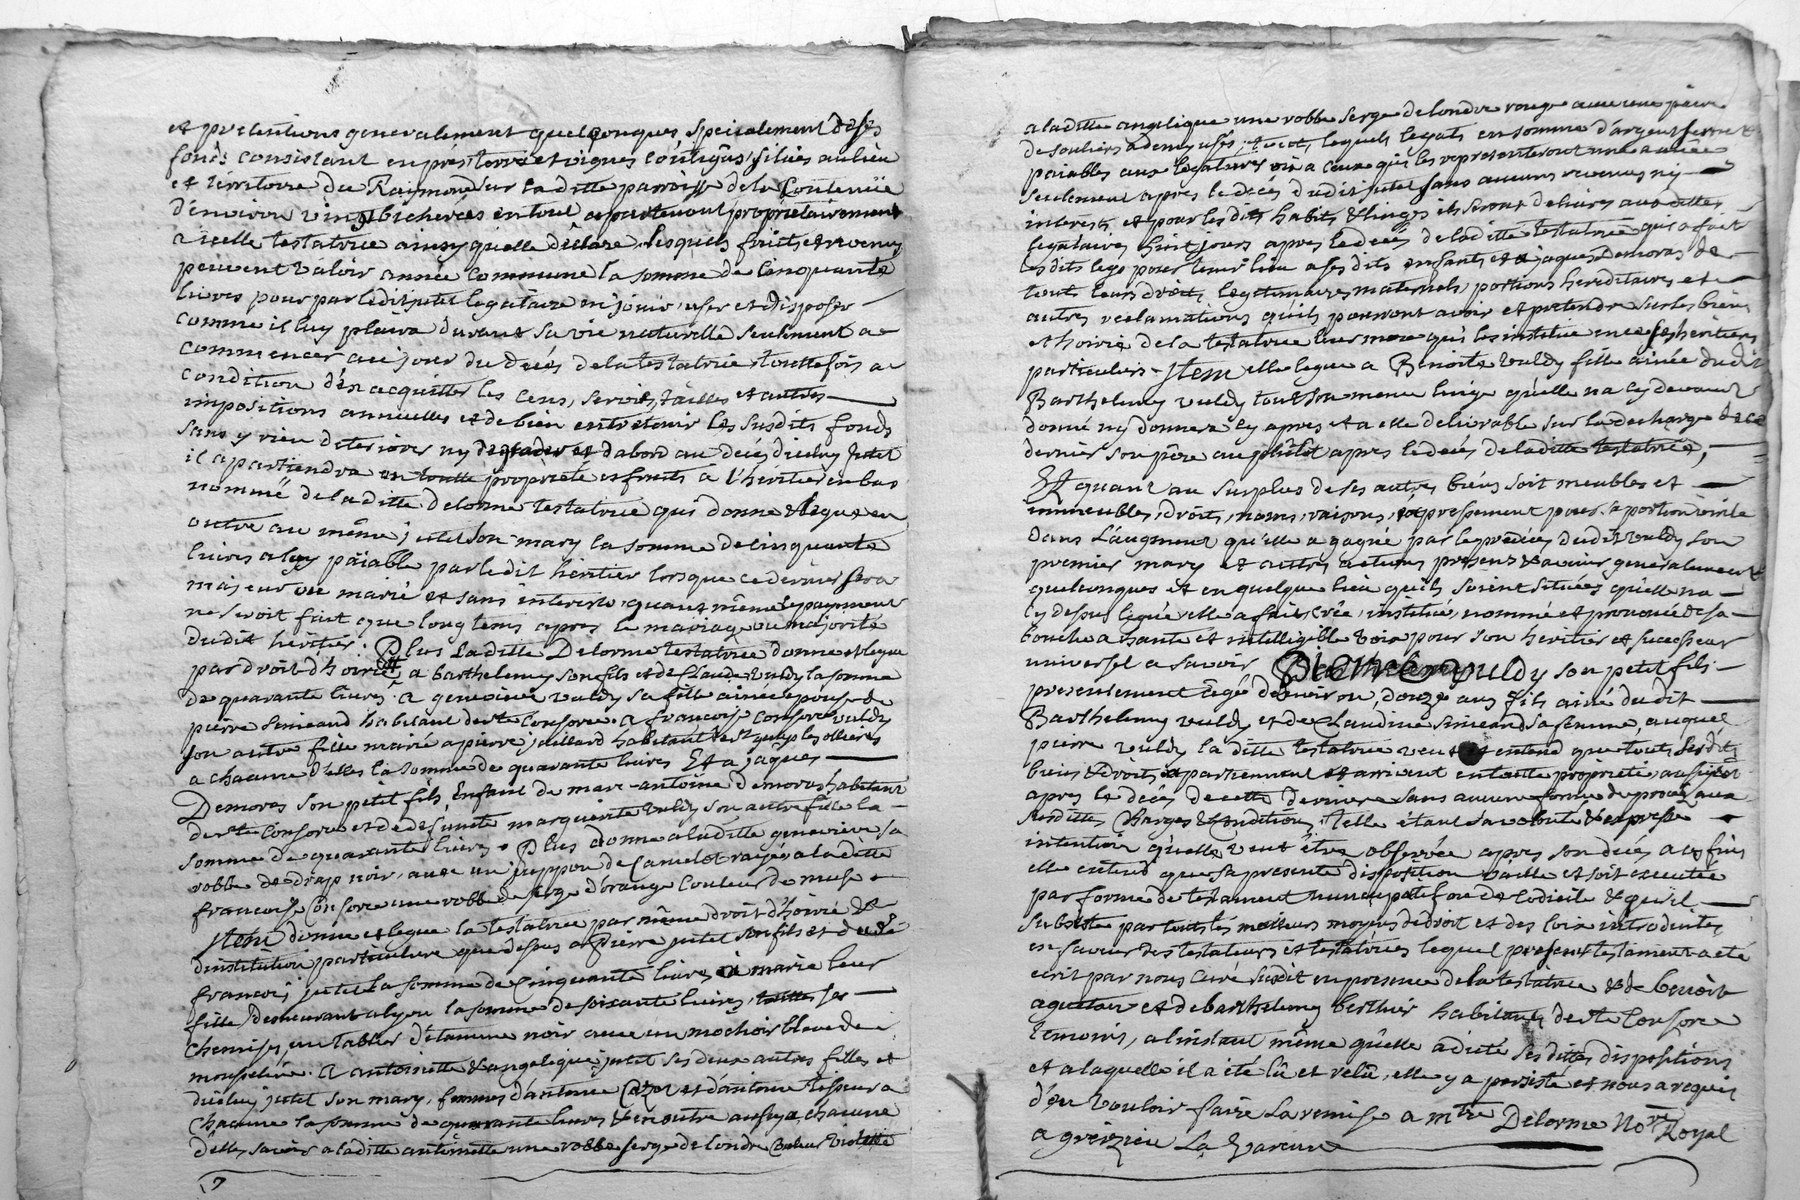 et pretentions generalement quelconques specialement des
fonds consistant en prés, terres et vignes contigus, situés au lieu
et territoire du Raimond sur laditte parroisse de la Contenüe
d'environ vingt bicherées en tout apartenant proprietairement
a icelle testatrice ainsy qu'elle déclare. lesquels fruits et revenus
peuvent valoir année commune la somme de Cinquante
livres pour par ledit jutet legataire en joüir, user et disposer
comme il luy plaira durant sa vie naturelle seulement a
commencer au jour du decés de la testatrice touttefois a
condition d'en acquitter les cens, servis, tailles et autres
impositions annuelles et de bien entretenir les susdits fonds
sans y rien deteriorer ny degrader et dabord au décés dudit jutet
il apartiendra en toutte proprieté et fruits a l'héritier en bas
nommé de laditte delorme testatrice qui donne & legue en
outre au même jutet son mary la somme de cinquante
livres a luy païable par ledit héritier lorsque ce dernier sera
majeur ou marié et sans interets, quant même le payement
ne seroit fait que longtems apres le mariage ou majorité
dudit héritier. Plus Laditte Delorme testatrice donne et legue
par droit d'hoirie a barthelemy son fils et de Claude vuldy la somme
de quarante livres. a genevieve vuldy sa fille ainée epouse de
pierre simeand habitant de ste Consorce. a francoise Consorce vuldy
son autre fille mariée a pierre juillard habitant de st genis les ollieres
a chacune d'elles la somme de quarante livres Et a jaques
Demoras son petit fils, enfant de marc-antoine demoras habitant
de ste Consorce et de defunte marguerite vuldy son autre fille la
somme de quarante livres. Plus donne a laditte genevieve sa
robbe de drap noir, avec un juppon de Camelot rayé, a laditte
francoise Consorce une robbe de serge d'orange Couleur de muse
Item donne et legue la testatrice par même droit d'hoirie &
d'institution particuliere que dessus a Pierre jutet son fils et dudt
francois jutet la somme de Cinquante livres, a marie leur
fille demeurant a lyon la somme de soixante livres, touttes ses
chemises, un tablier d'étamine noir avec un mochoir blanc de
mousseline. a antoinette & angelique jutet ses deux autres filles et
dudit jutet son mary, femmes d'antoine et d'antoine Tisseur a
chacune la somme de quarante livres & en outre aussy a chacune
d'elles, savoir a laditte antoinette une robbe serge de londre Couleur violette
a laditte angelique une robbe serge de londre rouge avec une paire
de souliers a demy usés, lesquels legats en somme d'argent seront
païables aux legataires ou a ceux qui les representeront une année
seulement apres le decés dudit jutet sans aucuns revenus ny
interests, et pour les dits habits & linges ils seront delivrés aux dittes
legataires huit jours apres le decés de laditte testatrice qui a fait
lesdits legs pour tenir lieu a ses dits enfants et a jaques Demoras de
tous leurs droits legitimaires maternels, portions hereditaires et
autres reclamations qu'ils pourront avoir et pretendre sur les biens
et hoirie de la testatrice leur mere qui les institue en ce ses heritiers
particuliers. Item elle legue a Benoite vuldy fille ainée dudit
Barthelemy vuldy tout son menu linge qu'elle n'a cy devant
donné ny donnera cy apres et a elle delivrable sur la decharge de ce
dernier son pére aussitôt apres le decés de laditte testatrice,
Et quant au surplus de ses autres biens soit meubles et
immeubles, droits, noms, raisons, expressement pour sa portion virile
dans l'augment qu'elle a gagné par le predecés dudit vuldy son
premier mary et autres actions presens & avenir generalement
quelconques et en quelque lieu qu'ils soient situées qu'elle n'a
cy dessus legué, elle a fait, crée, institué, nommé et prononcé de sa
bouche a haute et intelligible voix pour son heritier et successeur
universel a savoir vuldy son petit fils
presentement agé d'environ douze ans, fils ainé dudit
Barthelemy vuldy et de Claudine simeand sa femme auquel
pierre vuldy la ditte testatrice veut et entend que tous sesdits
biens & droits apartiennent et arrivent en toutte proprieté aussitôt
apres le decés de cette derniere sans aucune forme de procés aux
susdittes charges & Conditions, telle étant sa volonté & expresse
intention qu'elle veut être observée apres son decés aux fins
elle entend que sa presente disposition vaille et soit executée
par forme de testament nuncupatif ou de codicile & qu'il
subsiste par touts les meilleurs moyens de droit et des loix introduites
en faveur des testateurs et testatrices lequel present testament a eté
ecrit par nous curé susdit en presence de la testatrice & de benoit
aguettan et de barthelemy berthier habitants de ste Consorce
témoins, a l'instant même qu'elle a dicté ses dittes dispositions
et a laquelle il a été lû et relû, elle y a persisté et nous a requis
d'en vouloir faire la remise a mtre Delorme Nore Royal
a grézieu La Varenne